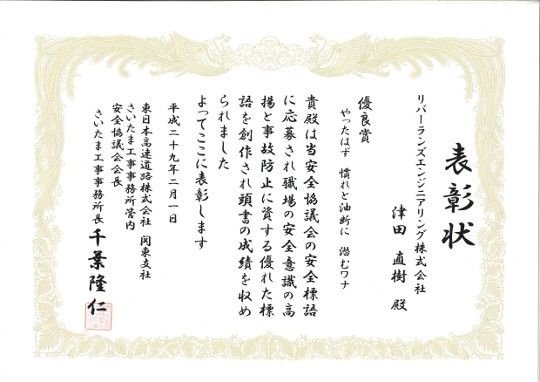 表彰状
リバーランズエンジニアリング株式会社
津田 直樹 殿
優良賞
やったはず 慣れと油断に 潜むワナ
貴殿は当安全協議会の安全標語
に応募され職場の安全意識の高
揚と事故防止に資する優れた標
語を創作され頭書の成績を収め
られました
よってここに表彰します
平成二十九年二月一日
東日本高速道路株式会社 関東支社
さいたま工事事務所管内
安全協議会会長
さいたま工事事務所長 千葉隆仁